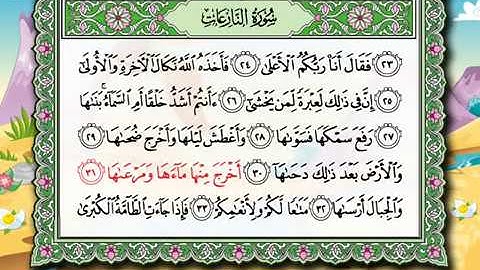 سُورَةُ النَّازِعَاتِ
٢٣ فَقَالَ أَنَا۠ رَبُّكُمُ ٱلۡأَعۡلَىٰ ٢٤ فَأَخَذَهُ ٱللَّهُ نَكَالَ ٱلۡأٓخِرَةِ وَٱلۡأُولَىٰٓ
٢٥ إِنَّ فِي ذَٰلِكَ لَعِبۡرَةٗ لِّمَن يَخۡشَىٰٓ ٢٦ ءَأَنتُمۡ أَشَدُّ خَلۡقًا أَمِ ٱلسَّمَآءُۚ بَنَىٰهَا
٢٧ رَفَعَ سَمۡكَهَا فَسَوَّىٰهَا ٢٨ وَأَغۡطَشَ لَيۡلَهَا وَأَخۡرَجَ ضُحَىٰهَا ٢٩
وَٱلۡأَرۡضَ بَعۡدَ ذَٰلِكَ دَحَىٰهَآ ٣٠ أَخۡرَجَ مِنۡهَا مَآءَهَا وَمَرۡعَىٰهَا ٣١
وَٱلۡجِبَالَ أَرۡسَىٰهَا ٣٢ مَتَٰعٗا لَّكُمۡ وَلِأَنۡعَٰمِكُمۡ ٣٣ فَإِذَا جَآءَتِ ٱلطَّآمَّةُ ٱلۡكُبۡرَىٰ